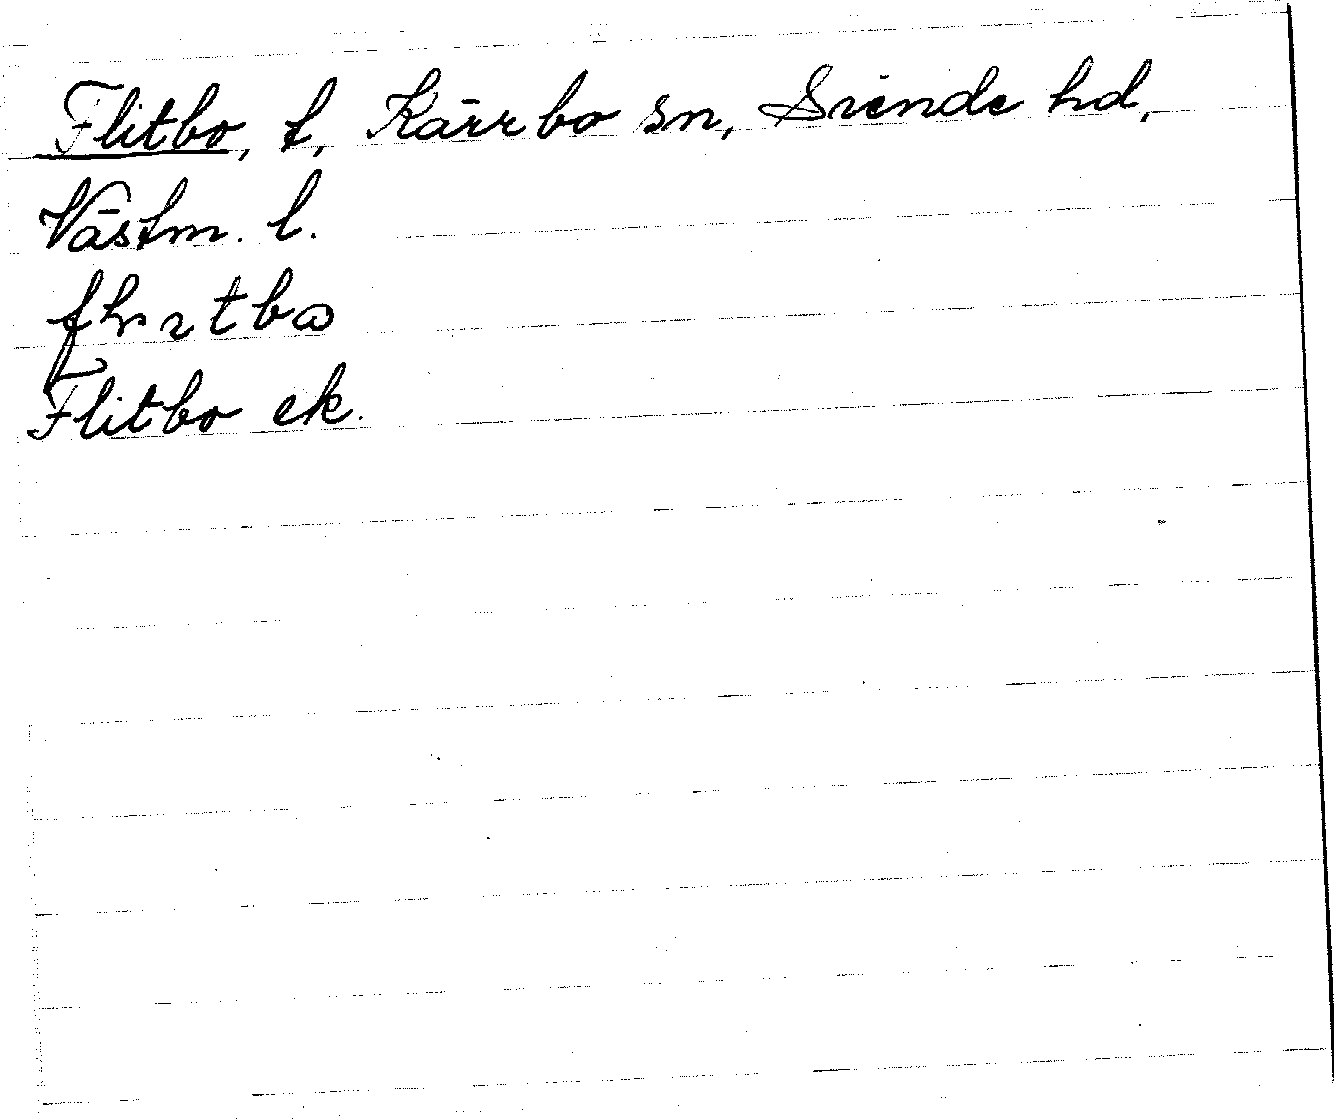 Flitbo, t, Kärrbo sn, Siende hd,
Västm. l.
Flitbo ek.